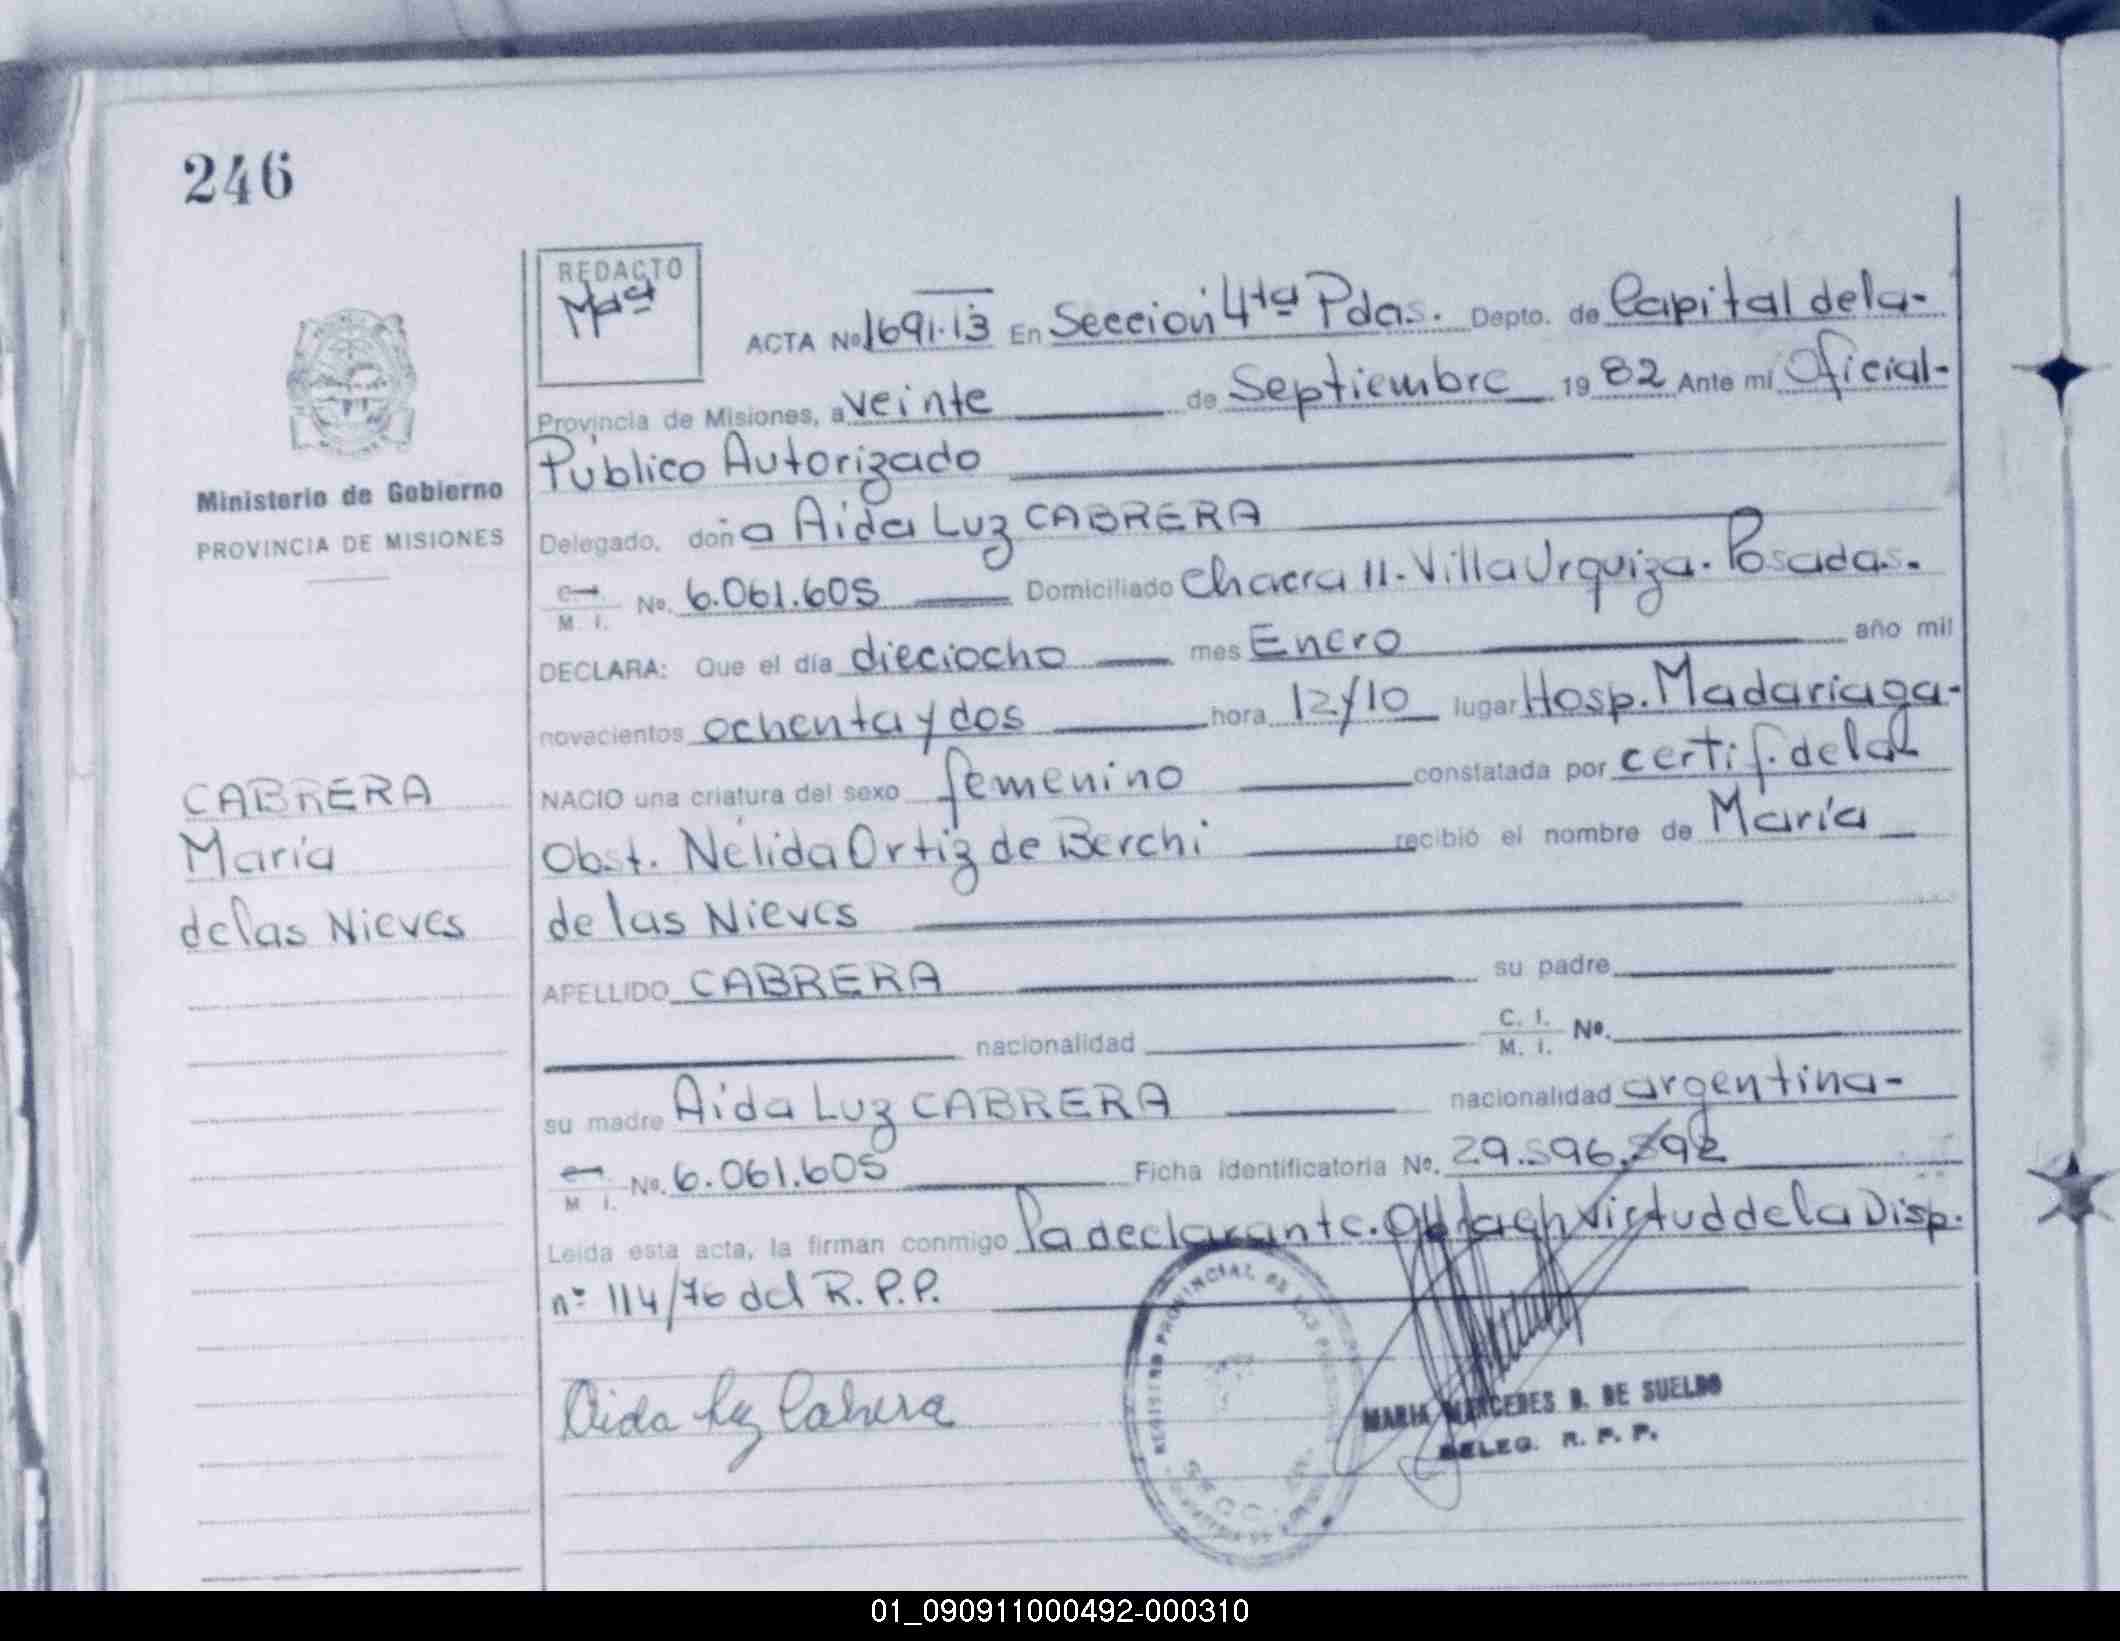 246
REDACTO
Mª
ACTA No 1691-13 En Sección 4ta Pdas. Depto. de Capital de la-
Provincia de Misiones, a veinte de Septiembre 19 82 Ante mí Oficial-
Público Autorizado
Ministerio de Gobierno
PROVINCIA DE MISIONES
Delegado, doña Aida Luz CABRERA
M. I. No. 6.061.605 Domiciliado Chacra 11-Villa Urquiza. Posadas.
DECLARA: Que el día dieciocho mes Enero año mil
novecientos ochenta y dos hora 12y10 lugar Hosp. Madariaga-
NACIO una criatura del sexo femenino constatada por certif. de la
Obst. Nélida Ortiz de Berchi recibió el nombre de María
de las Nieves
CABRERA
María
de las Nieves
APELLIDO CABRERA su padre
nacionalidad C. I. M. I. No.
su madre Aida Luz CABRERA nacionalidad argentina-
M I. No. 6.061.605 Ficha identificatoria No. 29.596.892
Leída esta acta, la firman conmigo la declarante. virtud de la Disp.
nº 114/76 del R.P.P.
Aida Luz Cabrera
REGISTRO PROVINCIAL DE LAS PERSONAS
MARIA MERCEDES D. DE SUELDO
DELEG. R. P. P.
01_090911000492-000310